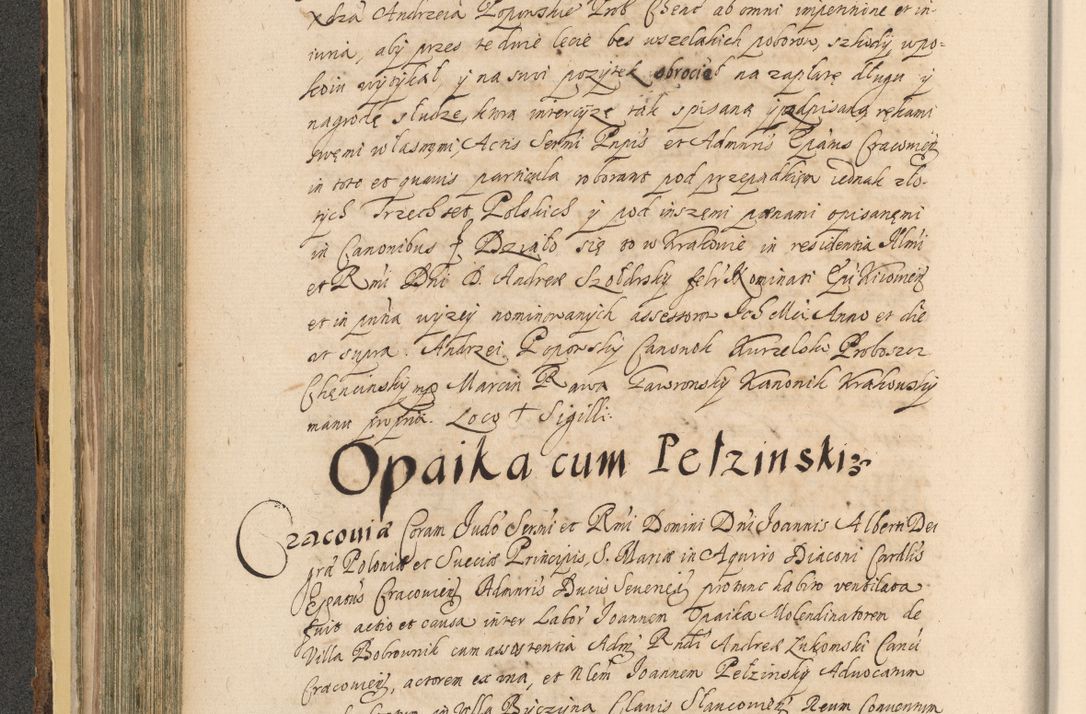 xdza Andrzeia Poporskie Prob Chenc ab omni impetitione et in-
iuria, aby przes te dwie lecie bes wszelakich poborow, szkody, w po-
koiu wytykał, y na swoi pozytek obrociel na zapłatę długu y
nagrodę słudze, ktora intercyze tak spisaną y podpisaną rękami
swemi własnymi, Actis Sermi Prnpis et Admnris Epatus Cracovien
in toto et quavis particula roborant pod przepadkiem iednak zło-
tych Trzech set Polskich y pod inszemi pœnami opisanemi
in Canonibus Działo się to w Krakowie in residentia Illmi
et Rmi Dni D. Andreæ Szołdrsky Nominati Epi Kiiovien
et in pntia wyzey nominowanych assessorow Ich Mci Anno et die
ut supra. Andrzei Poporsky Canonik Kurzelski Proboszcz
Chęncinsky mp Marcin Rawa Gawronsky Kanonik Krakowsky
manu propria. Loco † Sigilli.
Opaika cum Pełzinski
Cracoviæ Coram Judo Sermi et Rmi Domini Dni Joannis Alberti Dei
gra Poloniæ et Sueciæ Principis, S. Mariæ in Aquiro Diaconi Cardlis
Epatus Cracovien Admnris Ducis Severien protunc habito ventilata
fuit actio et causa inter Labor Joannem Opaika Molendinatorem de
Villa Bobrownik cum assistentia Adm Rndi Andreæ Lukomski Canci
Cracovien, actorem ex una, et Nlem Joannem Pełzinsky Advocatum
in Villa Byczyna Clavis Slancovien Reum Conventum